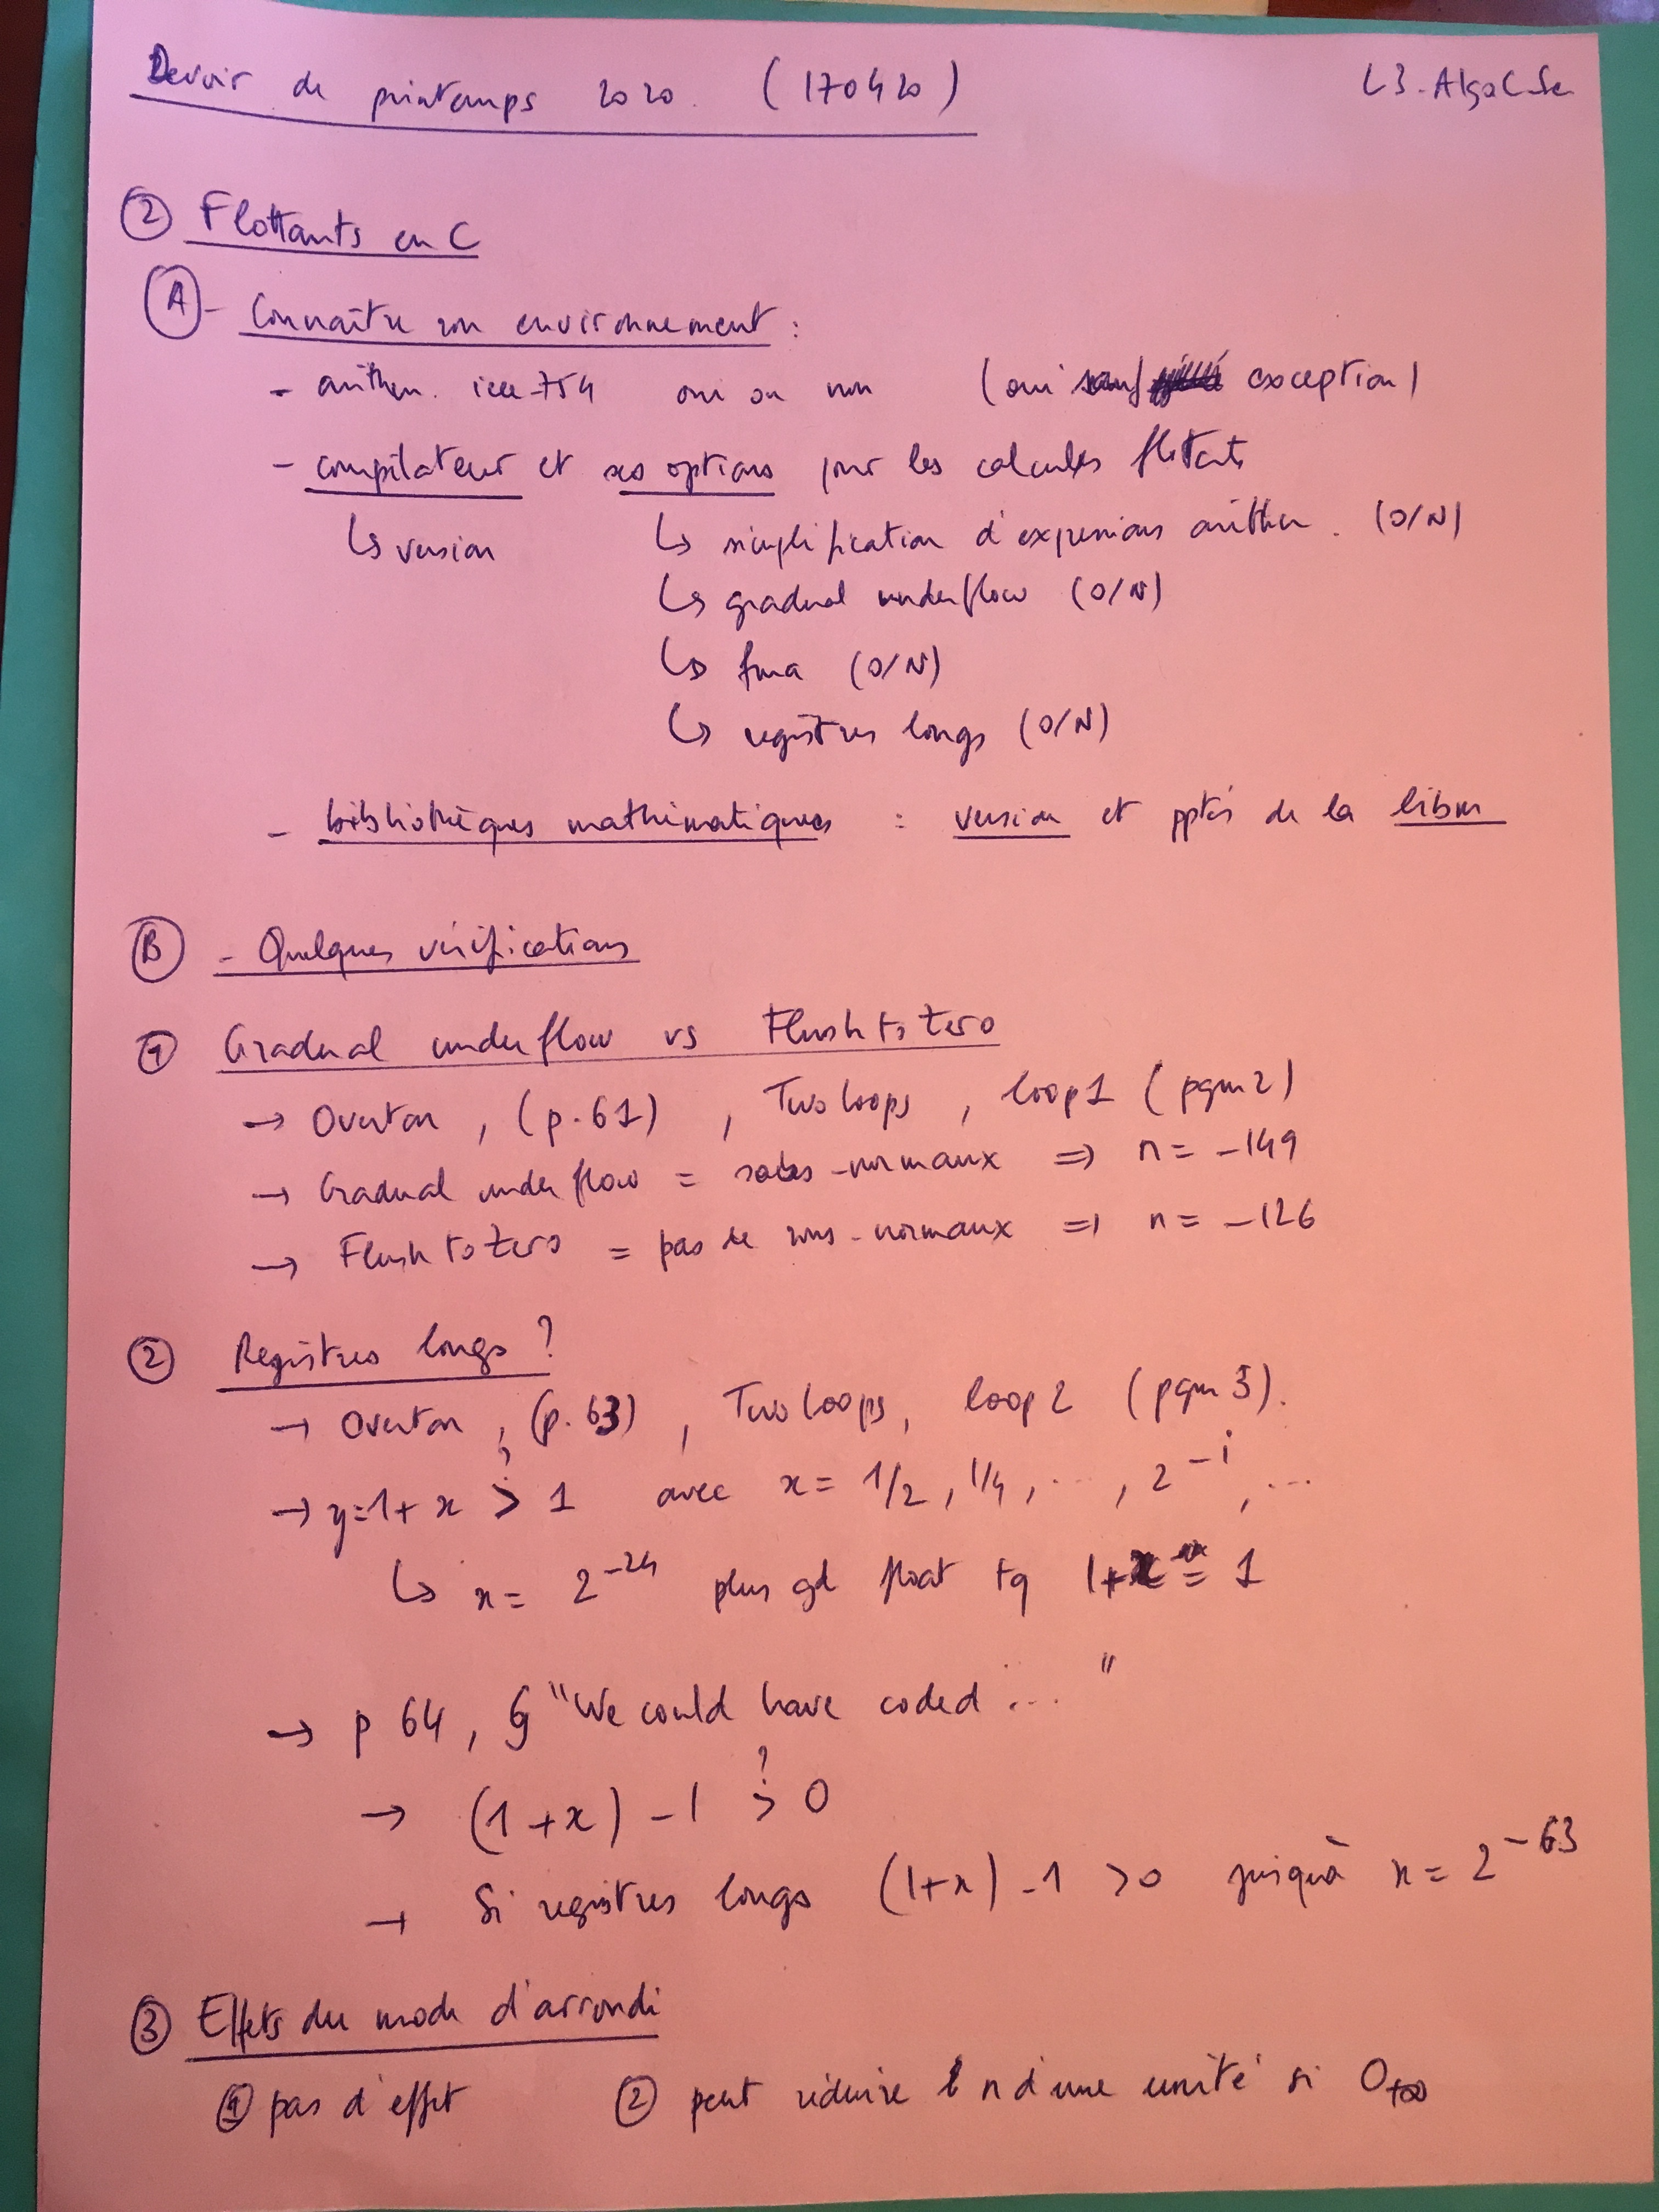 Devoir de printemps 2020. (170420)
L3-AlgoC_Sc
② Flottants en C
Ⓐ - Connaître son environnement :
- arithm. ieee-754 oui ou non (oui sauf exception)
- compilateur et ses options pour les calculs flottants
↳ version ↳ simplification d'expressions arithm. (O/N)
↳ gradual underflow (O/N)
↳ fma (O/N)
↳ registres longs (O/N)
- bibliothèques mathématiques : version et pptés de la libm
Ⓑ - Quelques vérifications
① Gradual underflow vs Flush to zero
→ Overton, (p. 61), Two loops, loop 1 (pgm 2)
→ Gradual underflow = sous-normaux ⇒ n = -149
→ Flush to zero = pas de sous-normaux ⇒ n = -126
② Registres longs ?
→ Overton, (p. 63), Two loops, loop 2 (pgm 3).
→ y=1+x >? 1 avec x = 1/2, 1/4, ..., 2^-i, ...
↳ x = 2^-24 plus gd float tq 1+x = 1
→ p 64, § "We could have coded ... "
→ (1+x) -1 >? 0
→ Si registres longs (1+x) -1 >0 jusqu'à x = 2^-63
③ Effets du mode d'arrondi
① pas d'effet ② peut réduire n d'une unité si O+∞